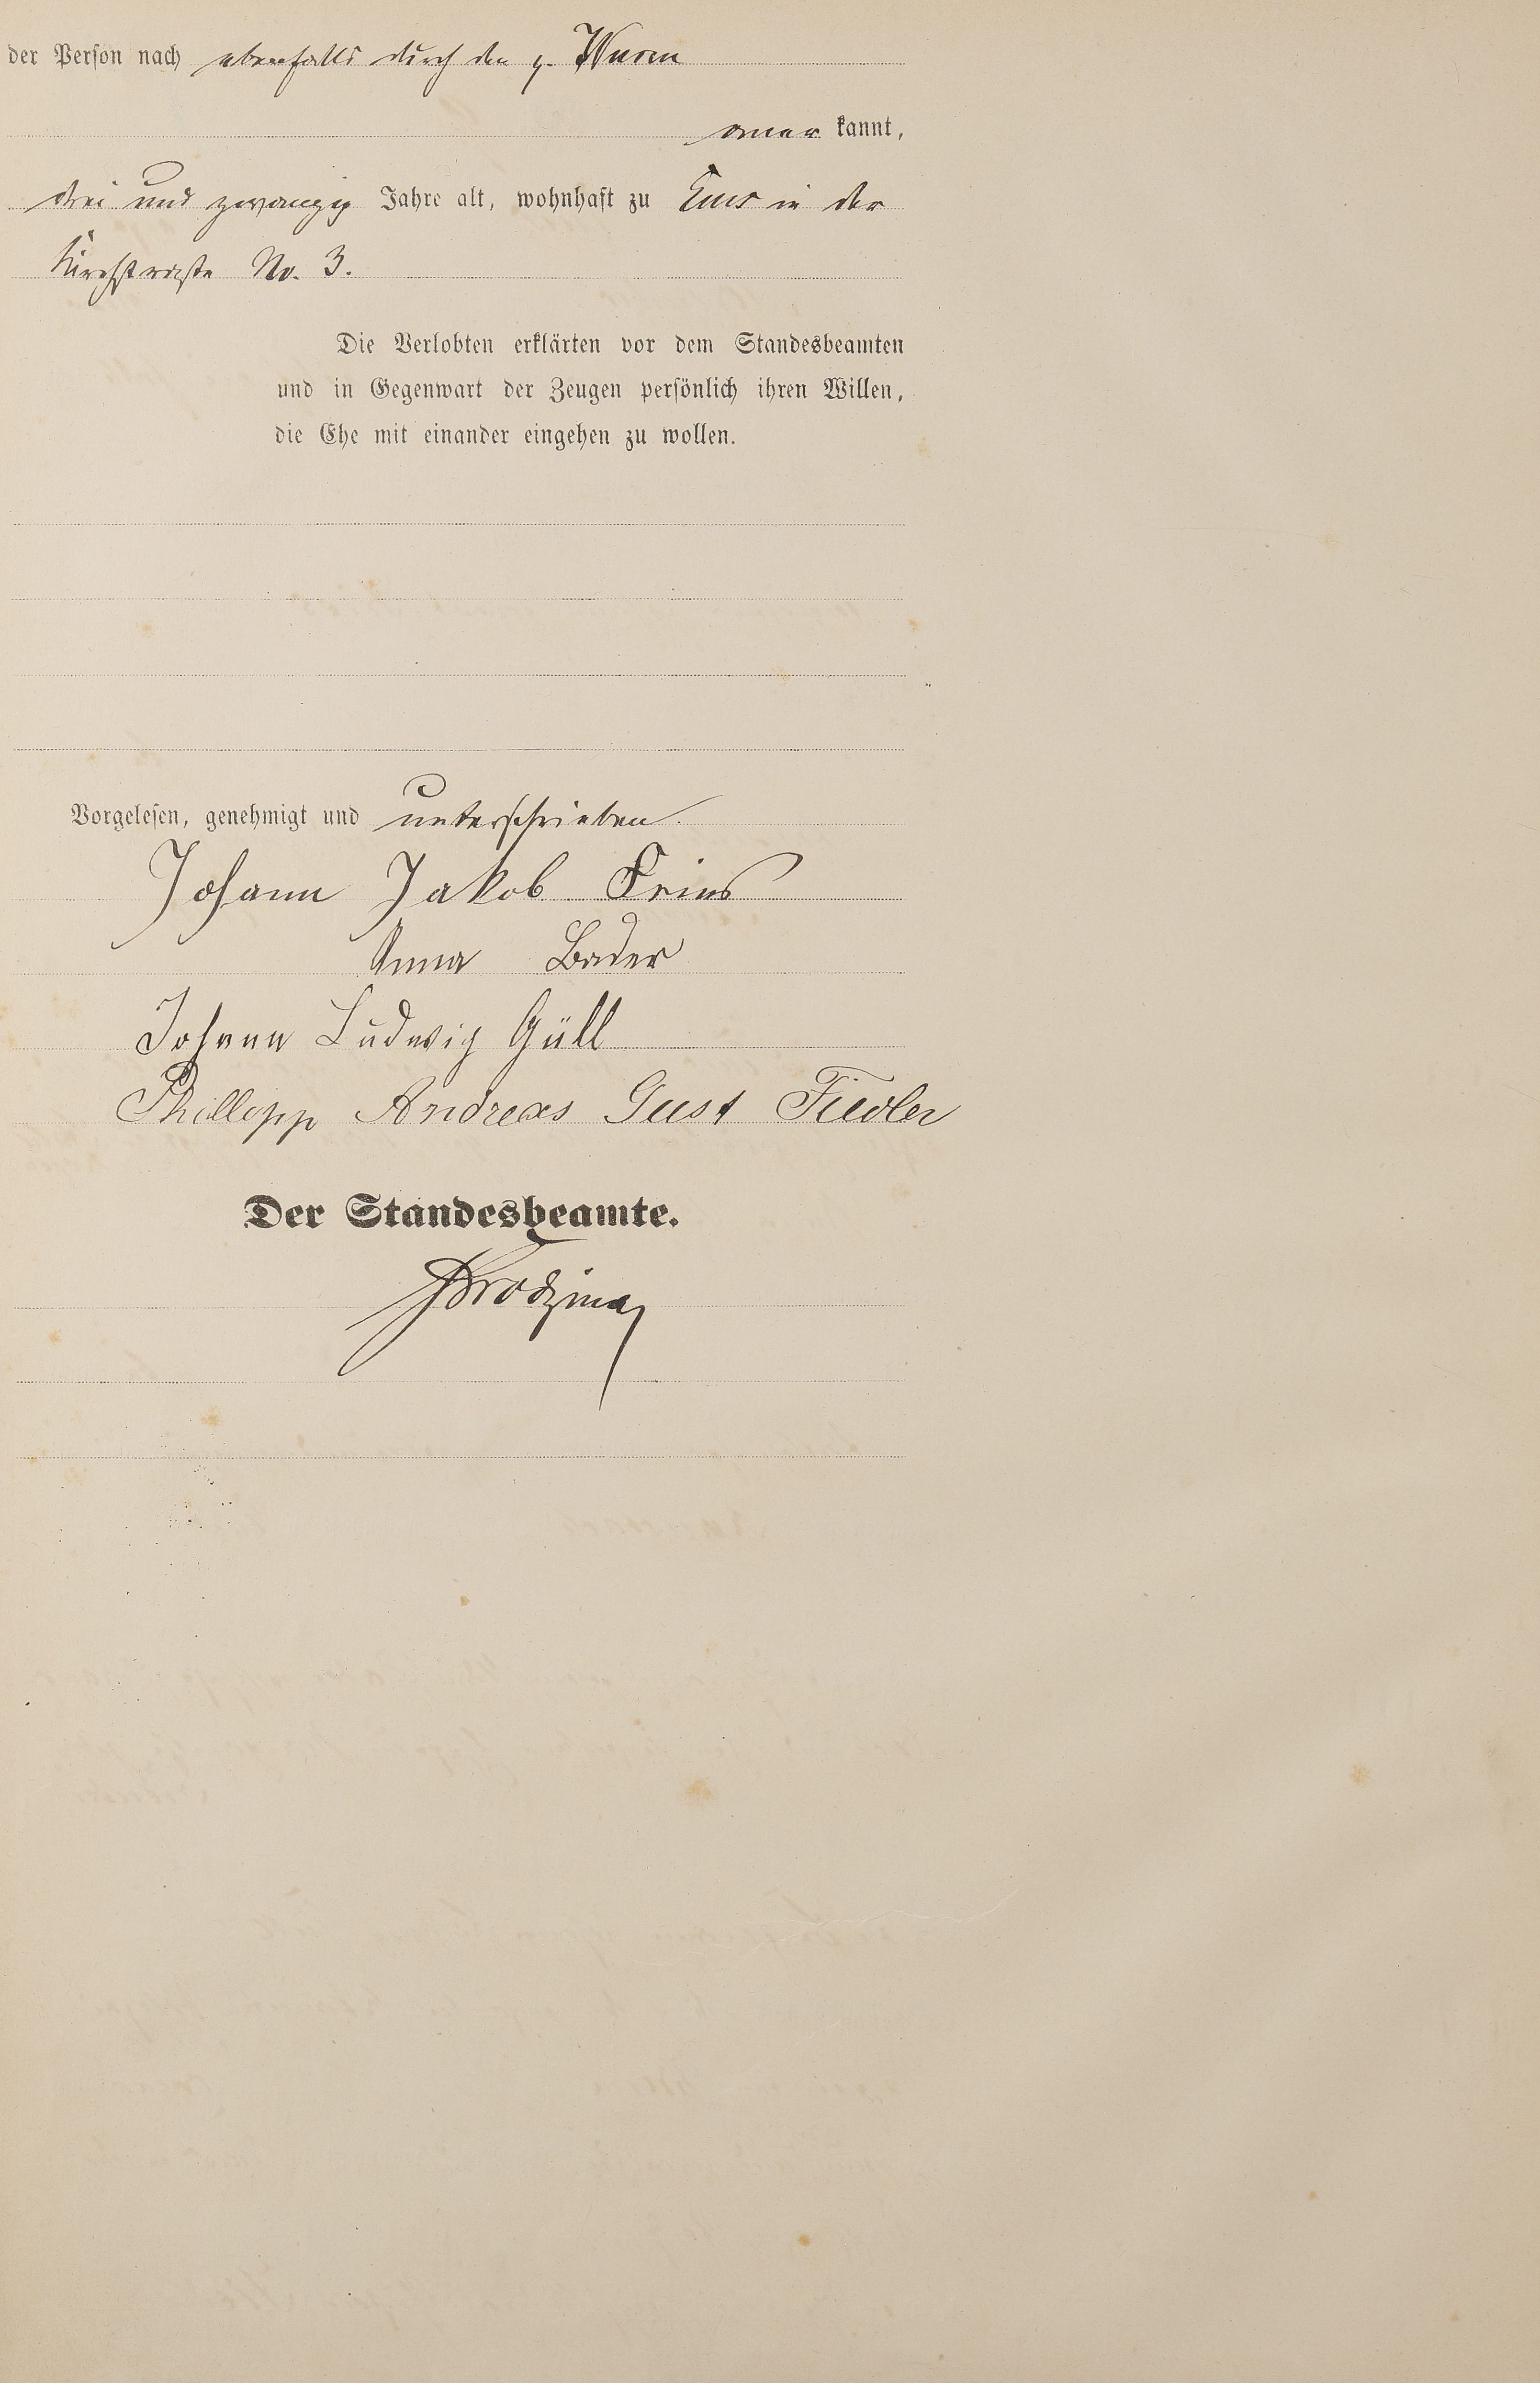 der Person nach ebenfalls durch den p. Wurm
aner kannt,
drei und zwanzig Jahre alt, wohnhaft zu Ems in der
Kirchstraße No. 3.
Die Verlobten erklärten vor dem Standesbeamten
und in Gegenwart der Zeugen persönlich ihren Willen,
die Ehe mit einander eingehen zu wollen.
Vorgelesen, genehmigt und unterschrieben.
Johann Jakob
Anna Bader
Johann Ludwig Güll
Phillipp Andreas Gust Fiedler
Der Standesbeamte.